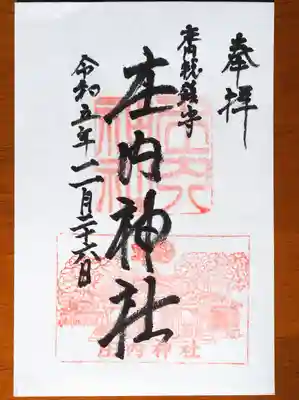 奉拝
庄内総鎮守
庄内神社
令和五年二月二十六日
庄内神社